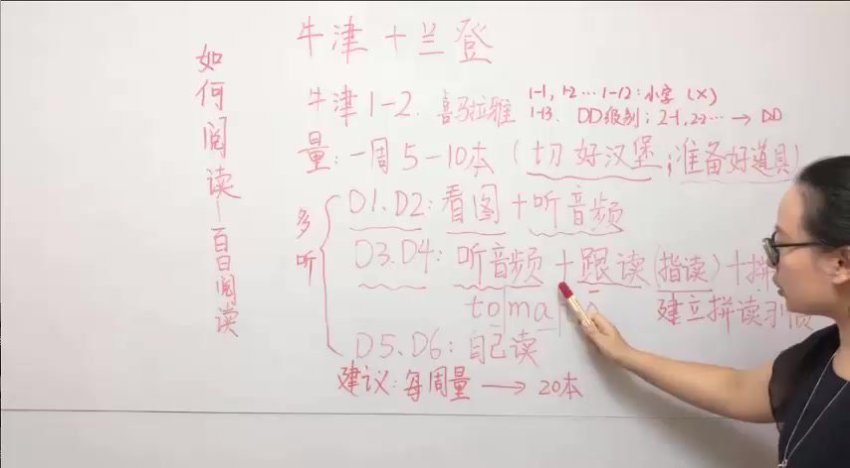 如何阅读-百日阅读
牛津+兰登
牛津1-2. 喜马拉雅 1-1, 1-2…1-12: 小字 (×)
1-13、 DD级别; 2-1, 2-2… → DD
量: 一周5-10本 (切好汉堡; 准备好道具)
多听
D1.D2: 看图+听音频
D3.D4: 听音频+跟读(指读)+拼
to|ma|
建立拼读习惯
D5、D6: 自己读
建议: 每周量 → 20本